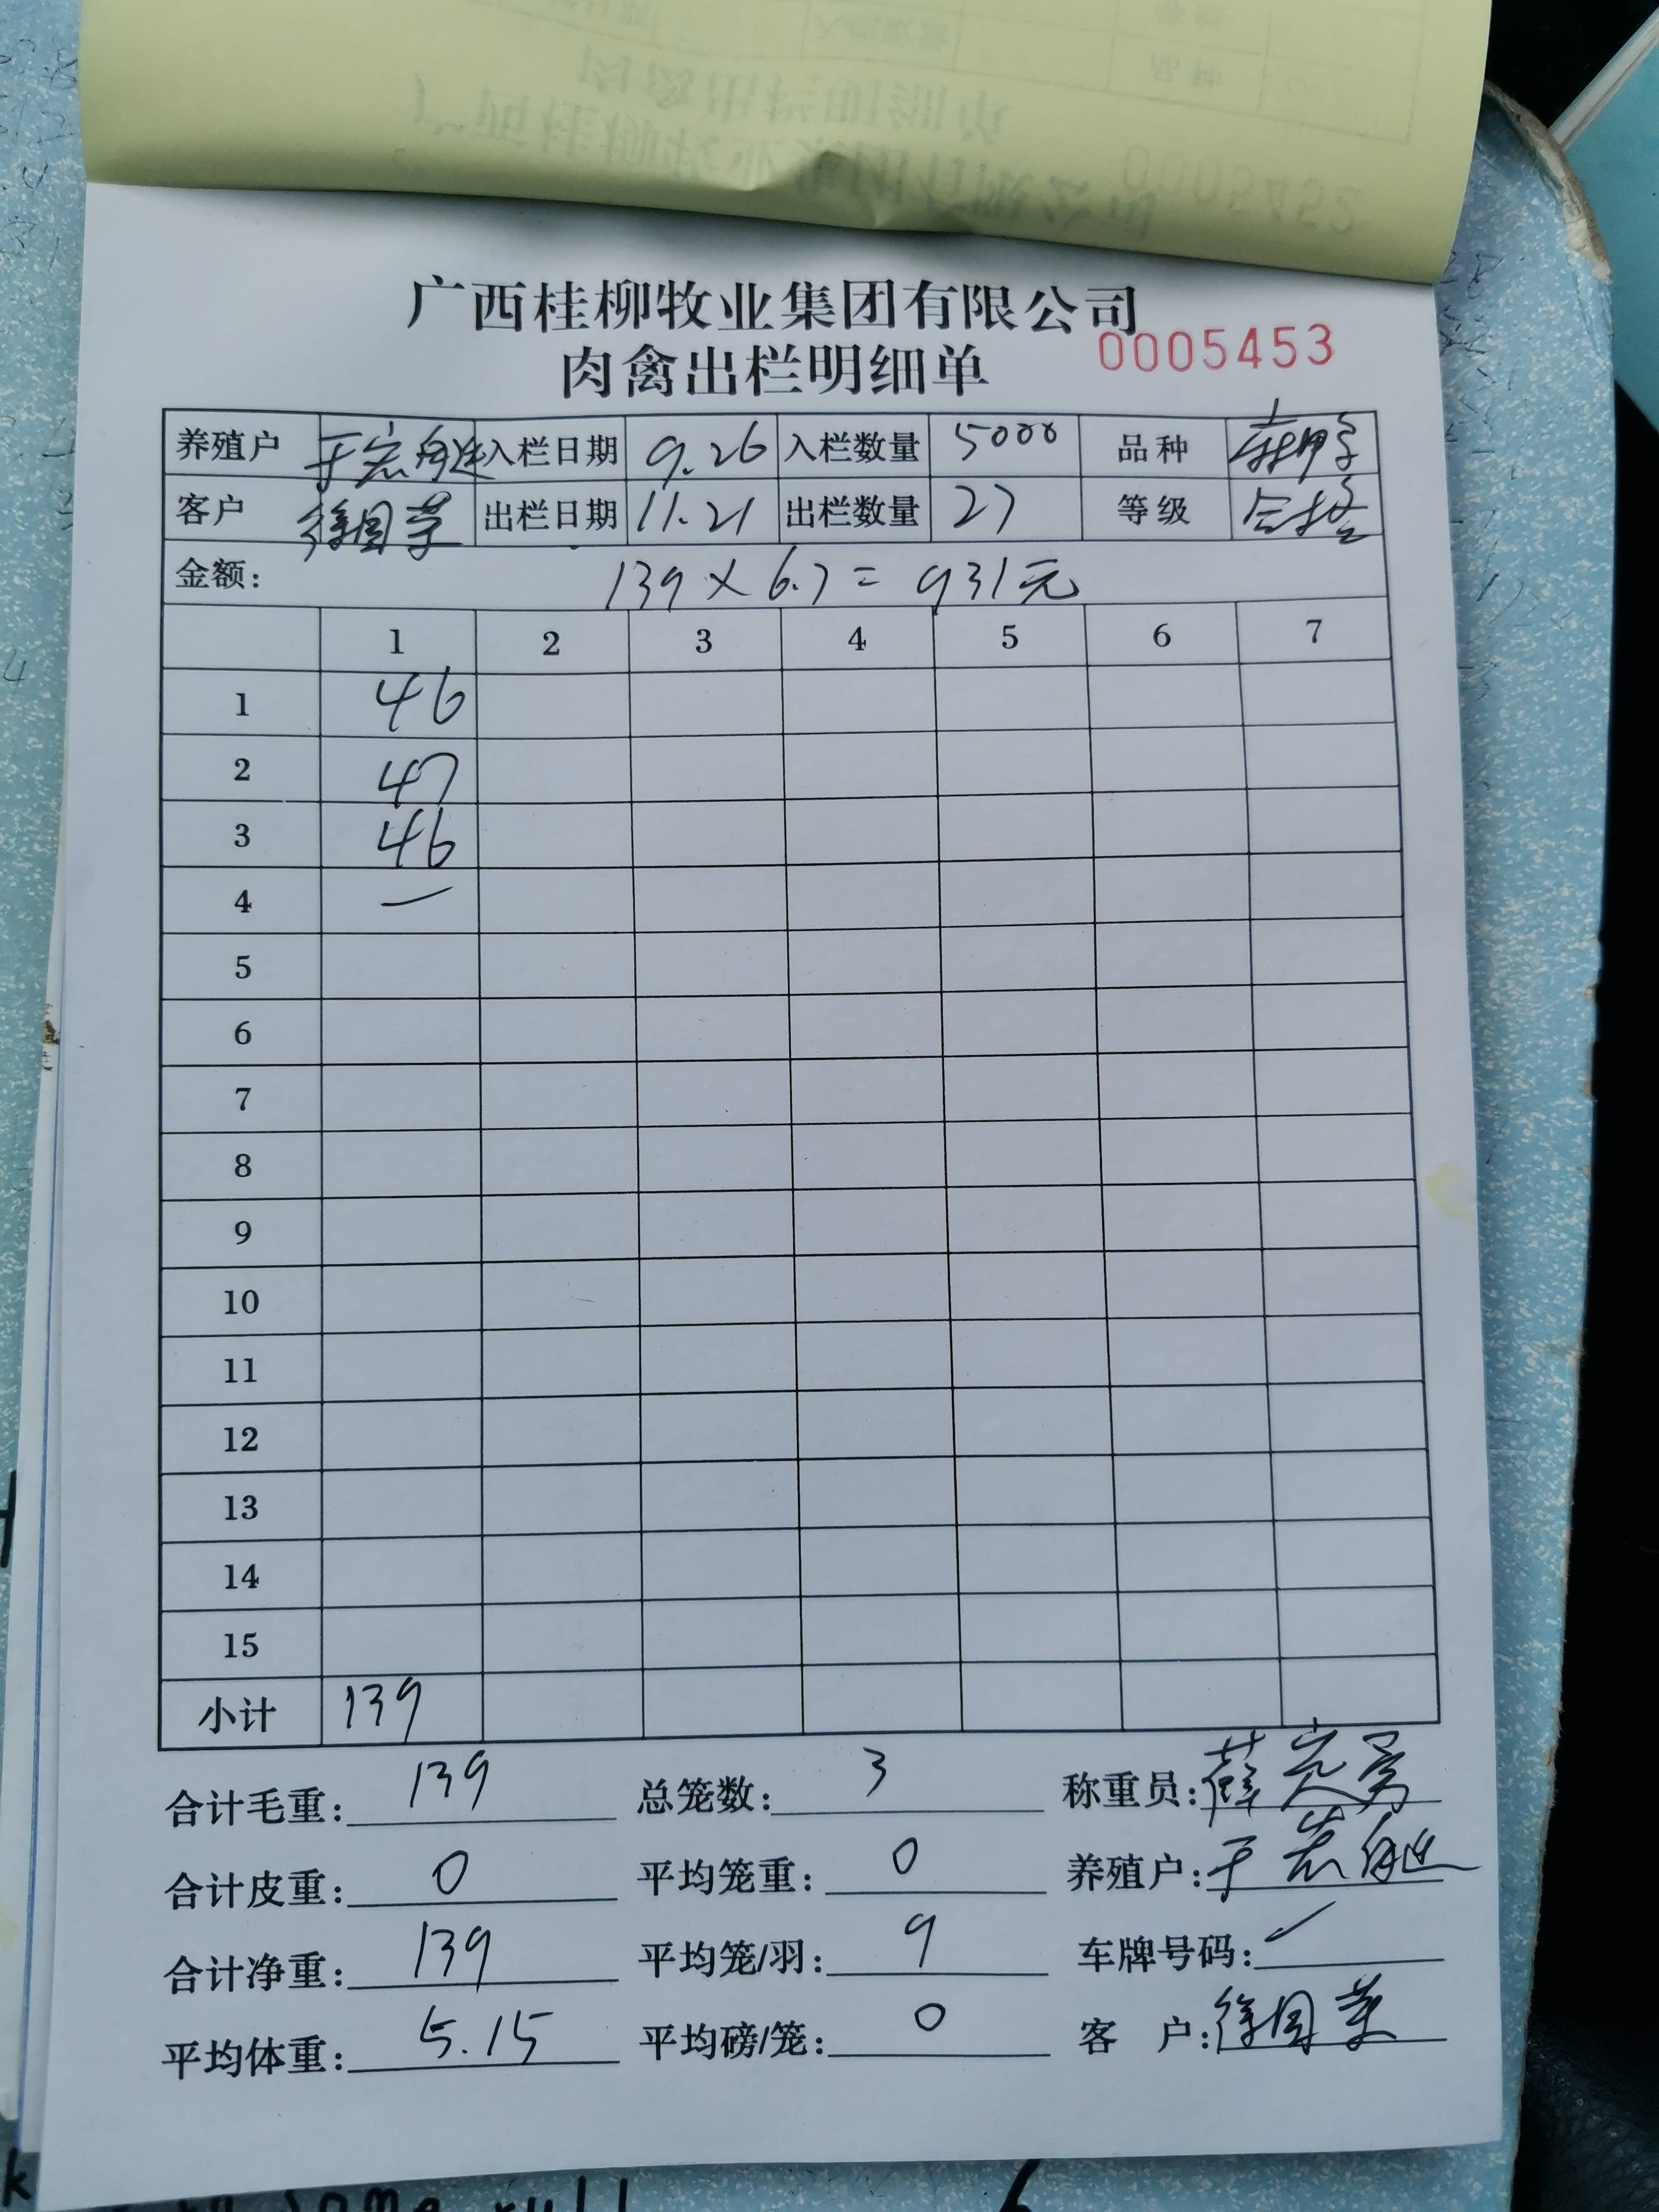 广西桂柳牧业集团有限公司
肉禽出栏明细单 0005453
养殖户 于宏 入栏日期 9.26 入栏数量 5000 品种
客户 徐国荣 出栏日期 11.21 出栏数量 27 等级 合格
金额: 139 × 6.7 = 931元
1 2 3 4 5 6 7
1 46
2 47
3 46
4 —
5
6
7
8
9
10
11
12
13
14
15
小计 139
合计毛重: 139 总笼数: 3 称重员: 薛
合计皮重: 0 平均笼重: 0 养殖户: 于宏
合计净重: 139 平均笼/羽: 9 车牌号码:
平均体重: 5.15 平均磅/笼: 0 客 户: 徐国荣